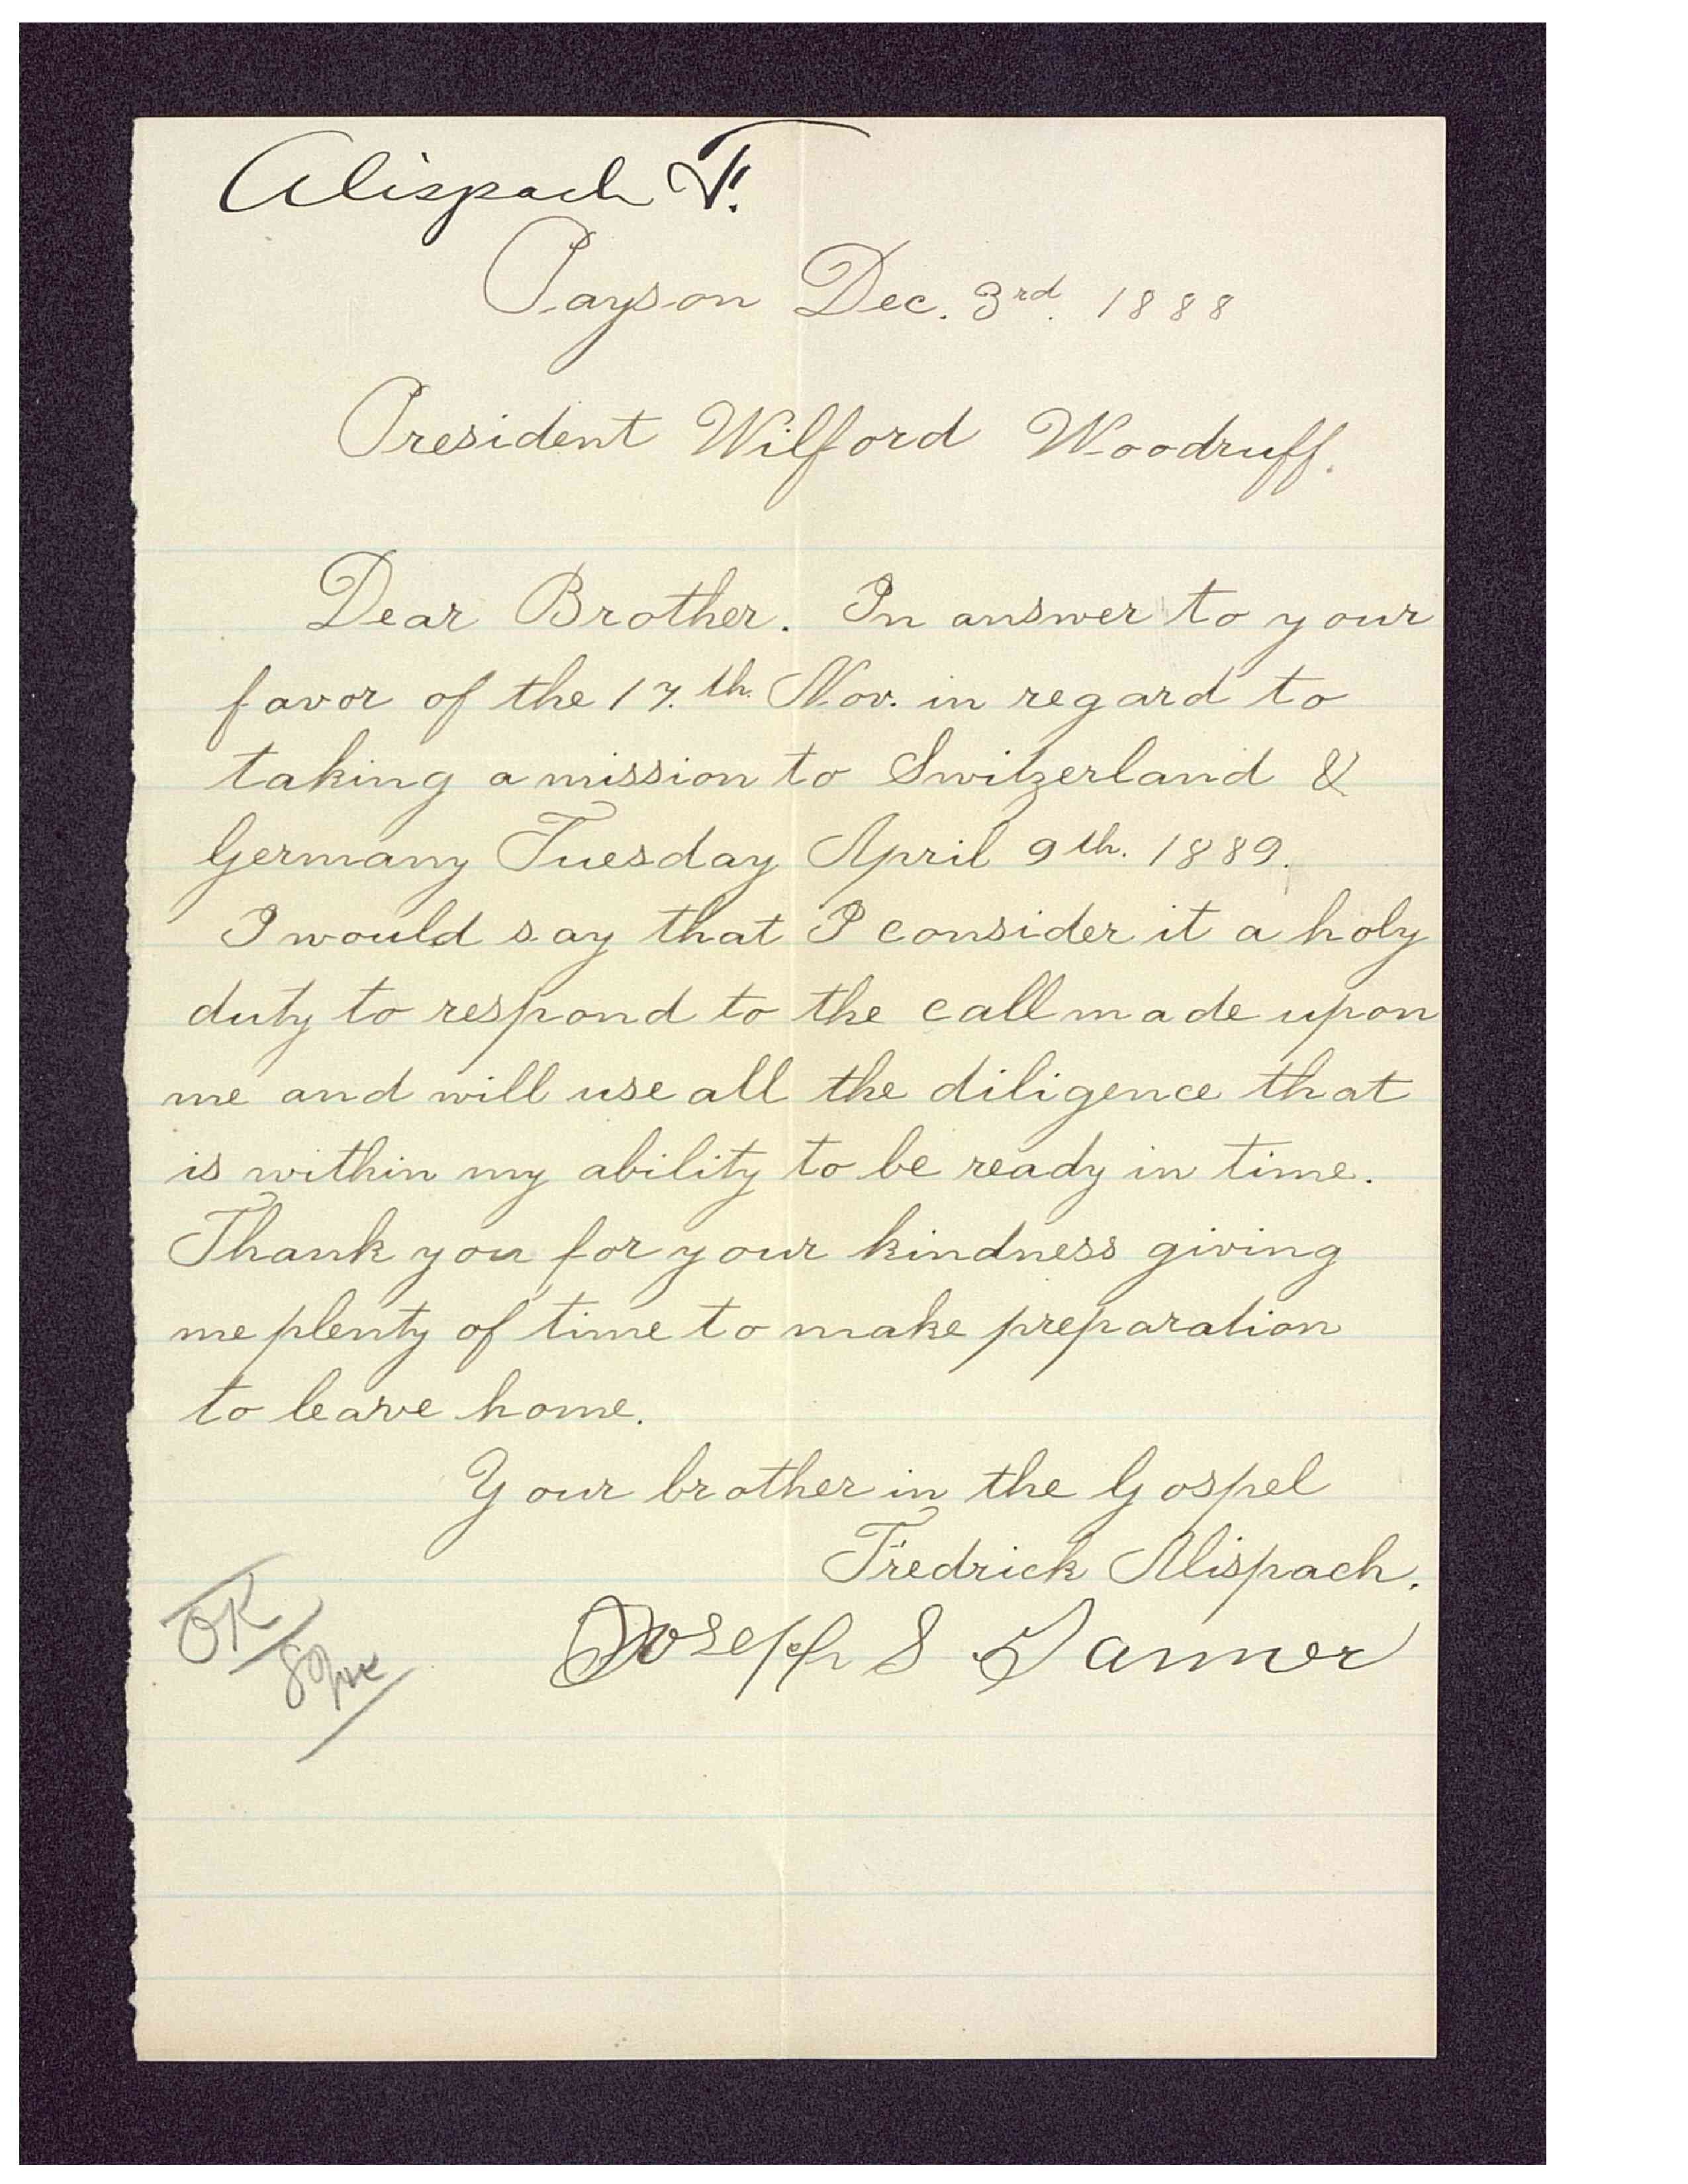 Alispach F.
Payson Dec. 3rd. 1888
President Wilford Woodruff.
Dear Brother. In answer to your
favor of the 17.th. Nov. in regard to
taking a mission to Switzerland &
Germany Tuesday April 9th. 1889.
I would say that I consider it a holy
duty to respond to the call made upon
me and will use all the diligence that
is within my ability to be ready in time.
Thank you for your kindness giving
me plenty of time to make preparation
to leave home.
Your brother in the Gospel
Fredrick Alispach.
Joseph S Tanner
OK